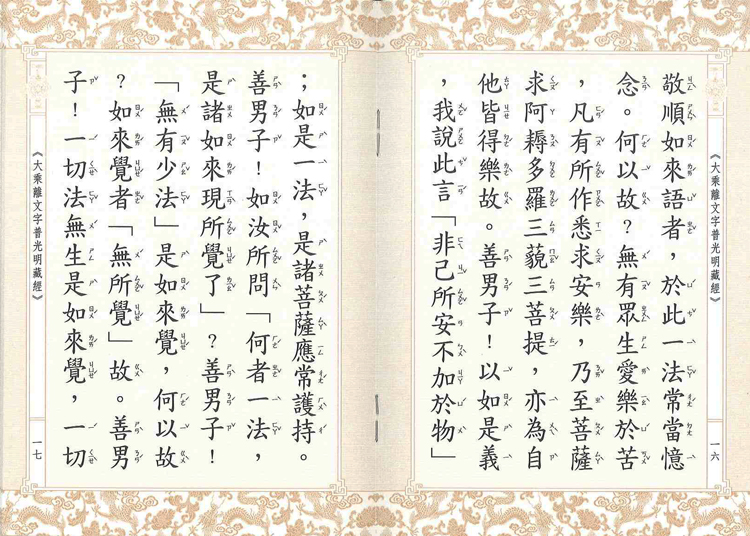 《大乘離文字普光明藏經》
一六
敬順如來語者，於此一法常當憶
念。何以故？無有眾生愛樂於苦
，凡有所作悉求安樂，乃至菩薩
求阿耨多羅三藐三菩提，亦為自
他皆得樂故。善男子！以如是義
，我說此言「非己所安不加於物」
；如是一法，是諸菩薩應常護持。
善男子！如汝所問「何者一法，
是諸如來現所覺了」？善男子！
「無有少法」是如來覺，何以故
？如來覺者「無所覺」故。善男
子！一切法無生是如來覺，一切
《大乘離文字普光明藏經》
一七